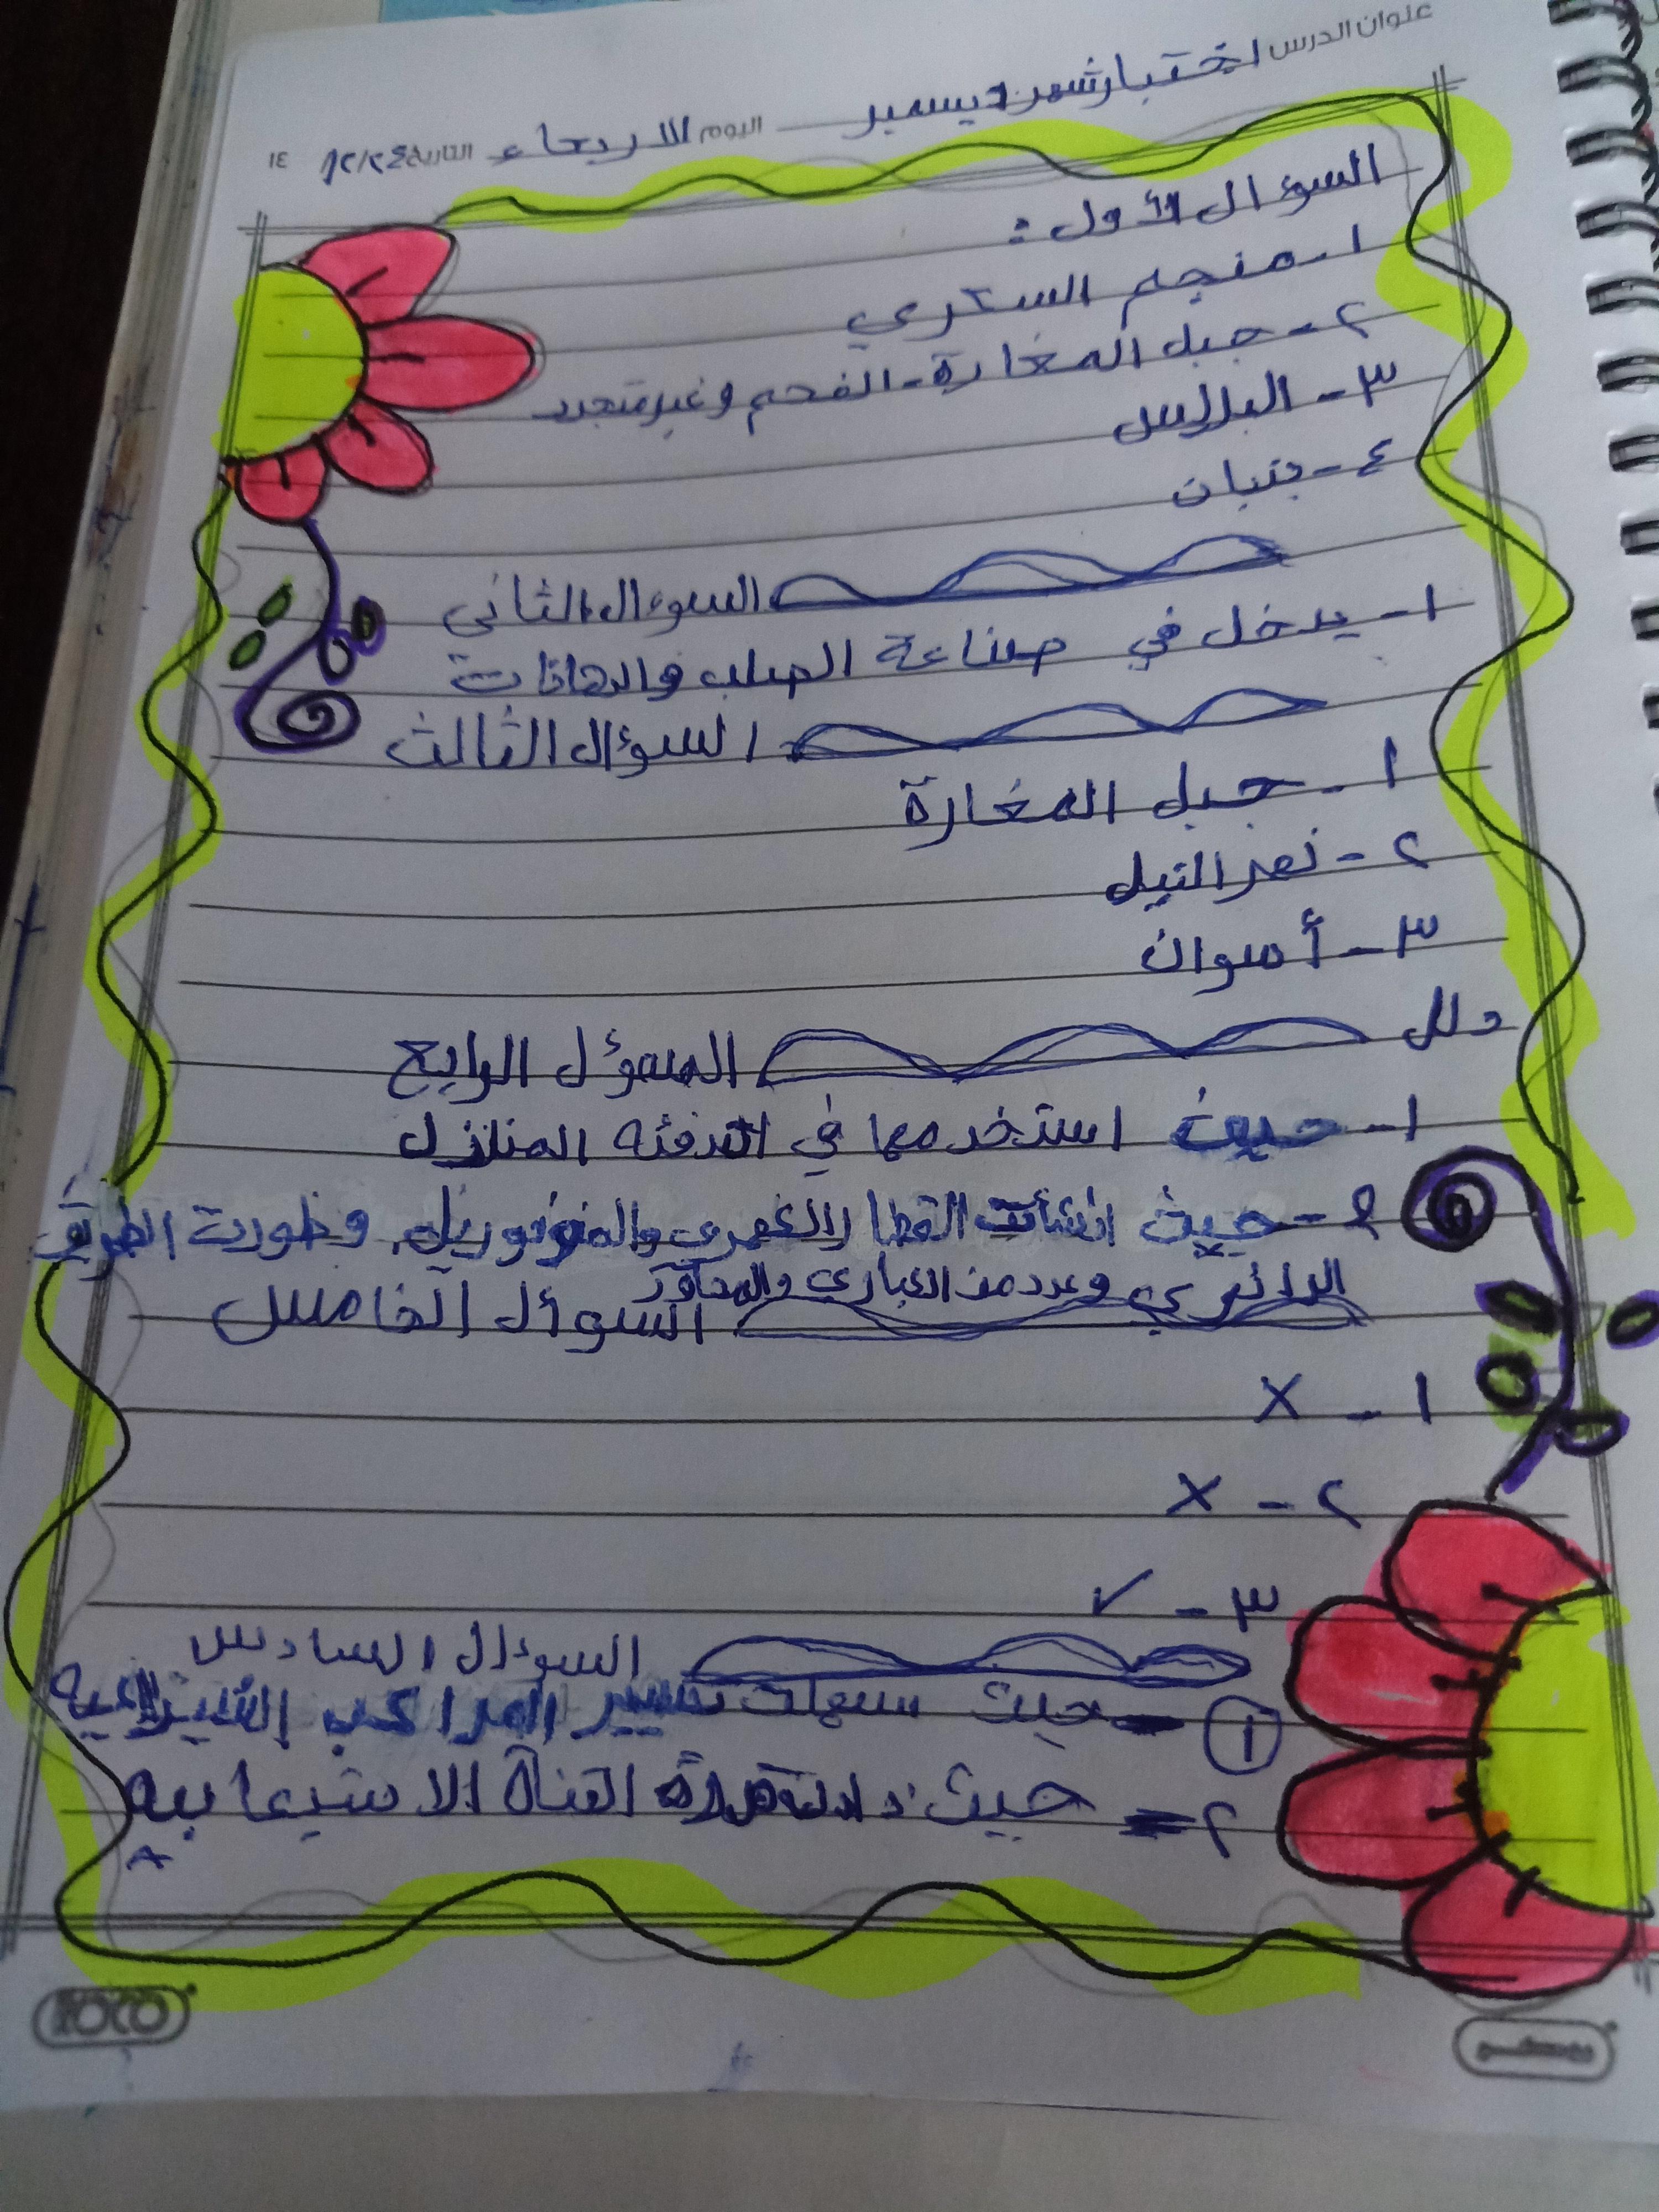 عنوان الدرس اختبار شهر ديسمبر اليوم الاربعاء التاريخ ١٢/٢٤ ١٤
السؤال الأول :
١ - منجم السكري
٢ - جبل المغارة - الفحم وغير متجدد
٣ - البرلس
٤ - بنبان
السوءال الثاني
١ - يدخل في صناعة الصلب والدهانات
السؤال الثالث
١ - جبل المغارة
٢ - نهر النيل
٣ - أسوان
دلل
السؤل الرابع
١ - حيث استخدمها في التدفئه المنازل
٢ - حيث انشأت القطار الكهربي والمونوريل وطورت الطريق
الدائري وعدد من الكباري والمحاور
السوأل الخامس
١ - X
٢ - X
٣ - ✓
السوءال السادس
١ - حيث سهلت تسير المراكب الشراعيه
٢ - حيث القناة الاستيعابيه
ROCO